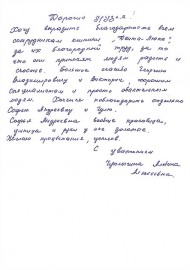 Дорогие друзья!
Хочу выразить благодарность всем
сотрудникам клиники
за их благородный труд, за то
что они приносят людям радость и
счастье. Большое спасибо
Владимировичу и Виктории, хорошим
специалистам и просто обаятельным
людям. Хочется поблагодарить отдельно
Софью Андреевну и
Софья Андреевна вообще красавица,
умница и руки у неё золотые.
Желаю процветания, успехов.
С уважением
Алевтина
Алексеевна